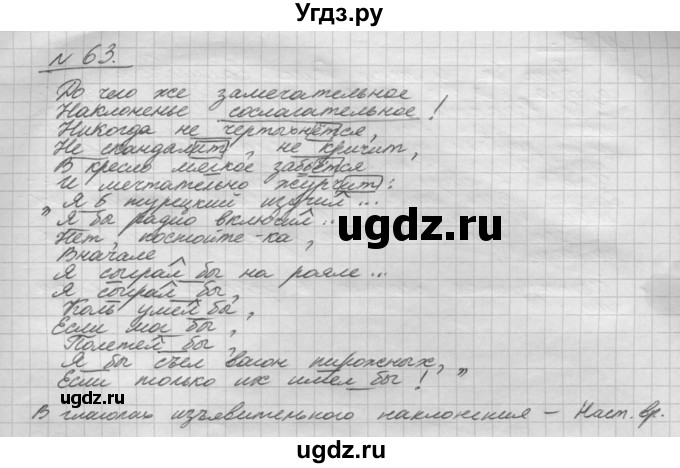 Угдз.ру
N 63.
До чего же замечательное
Наклоненье сослагательное!
Никогда не чертыхнётся,
Не скандалит, не кричит,
В кресло мягкое забьётся
И мечтательно журчит:
„Я б турецкий изучил...
Я бы радио включил...
Нет, постойте-ка,
Вначале
Я сыграл бы на рояле...
Я сыграл бы,
Коль умел бы,
Если мог бы,
Полетел бы,
Я бы съел вагон пирожных,
Если только их имел бы!"
В глаголах изъявительного наклонения – Наст. вр.
ugdz.ru
ugdz.ru
ugdz.ru
ugdz.ru